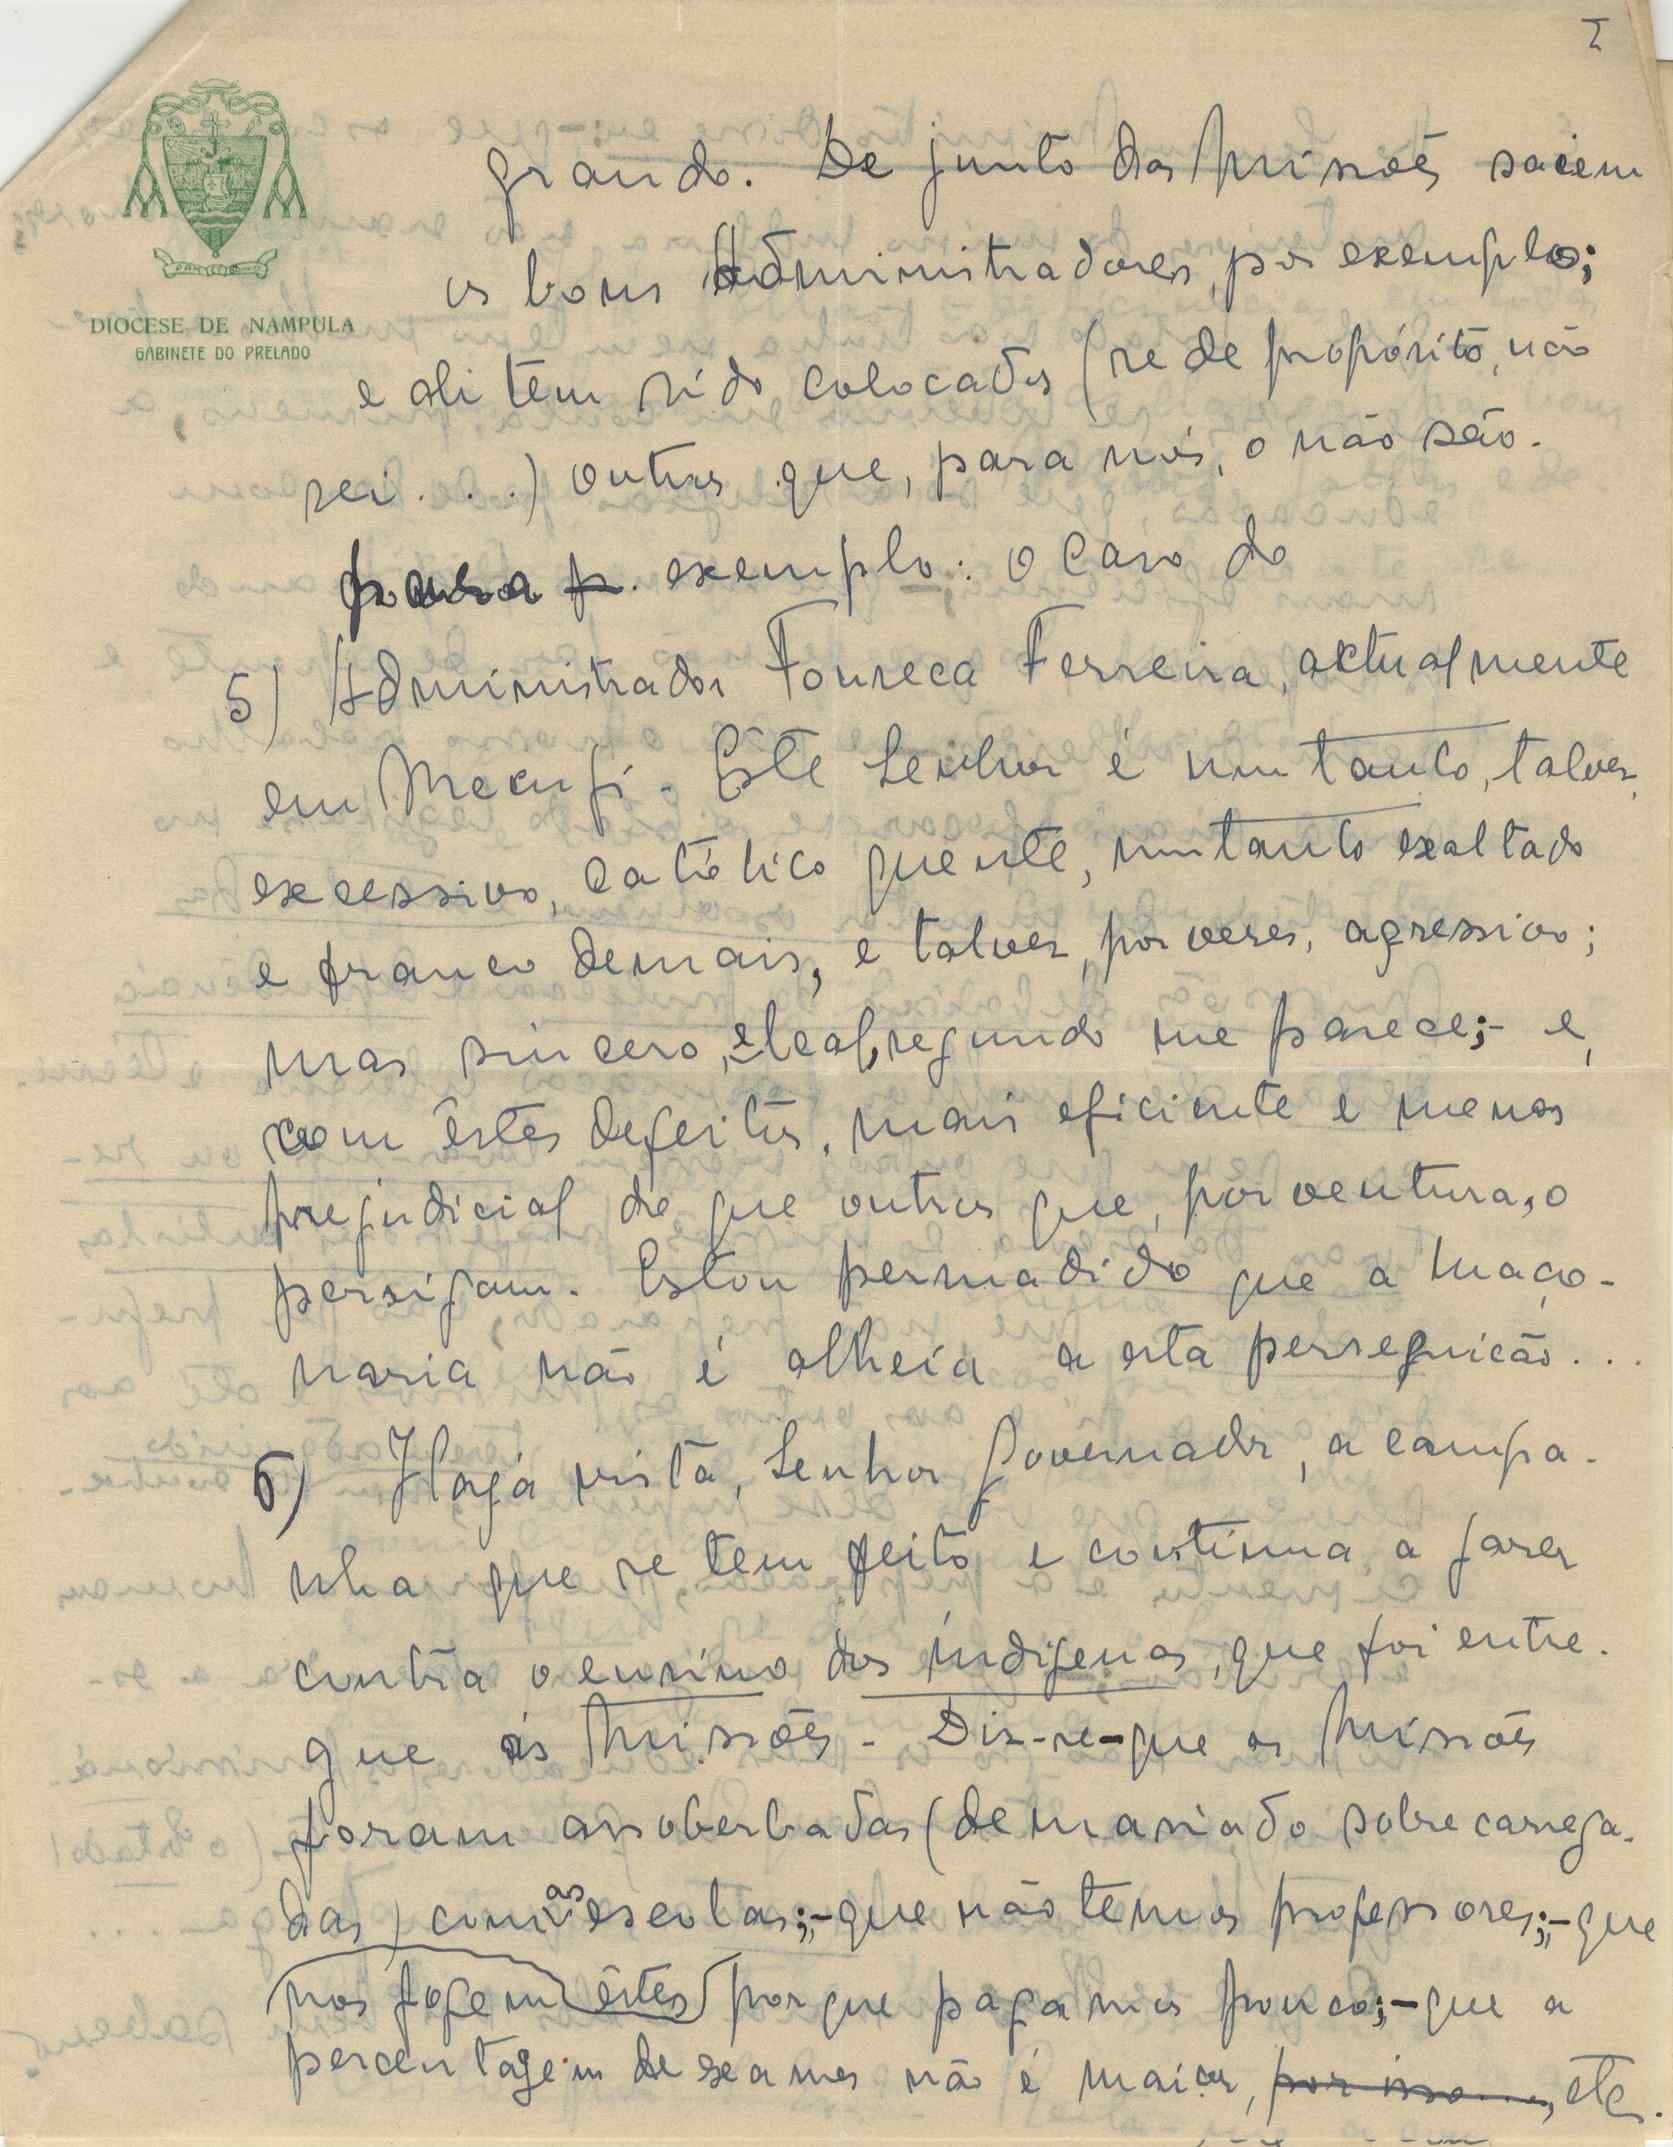 I
DIOCESE DE NAMPULA
GABINETE DO PRELADO
grando. De junto das Missões saiem
os bons Administradores, por exemplo;
e ali têm sido colocados (se de propósito, não
sei...) outros que, para nós, o não são.
p. exemplo: o caso do
5) Administrador Fonseca Ferreira, actualmente
em Mecufi. Êste Senhor é um tanto, talvez,
excessivo, católico quente, um tanto exaltado
e franco demais, e talvez, por vezes, agressivo;
mas sincero, e leal, segundo me parece;- e,
com êstes defeitos, mais eficiente e menos
prejudicial do que outros que, porventura, o
persigam. Estou persuadido que a Maço-
naria não é alheia a esta perseguicão...
6) Haja vista, Senhor Governador, a campa-
nha que se tem feito e continua a fazer
contra o ensino dos indígenas, que foi entre-
gue ás Missões. Diz-se-que as Missões
foram assoberbadas (demasiado sobrecarrega-
das) com as escolas;-que não temos professores;-que
nos fogem êstes porque pagamos pouco;-que a
percentagem de exames não é maior, por isso..., etc.